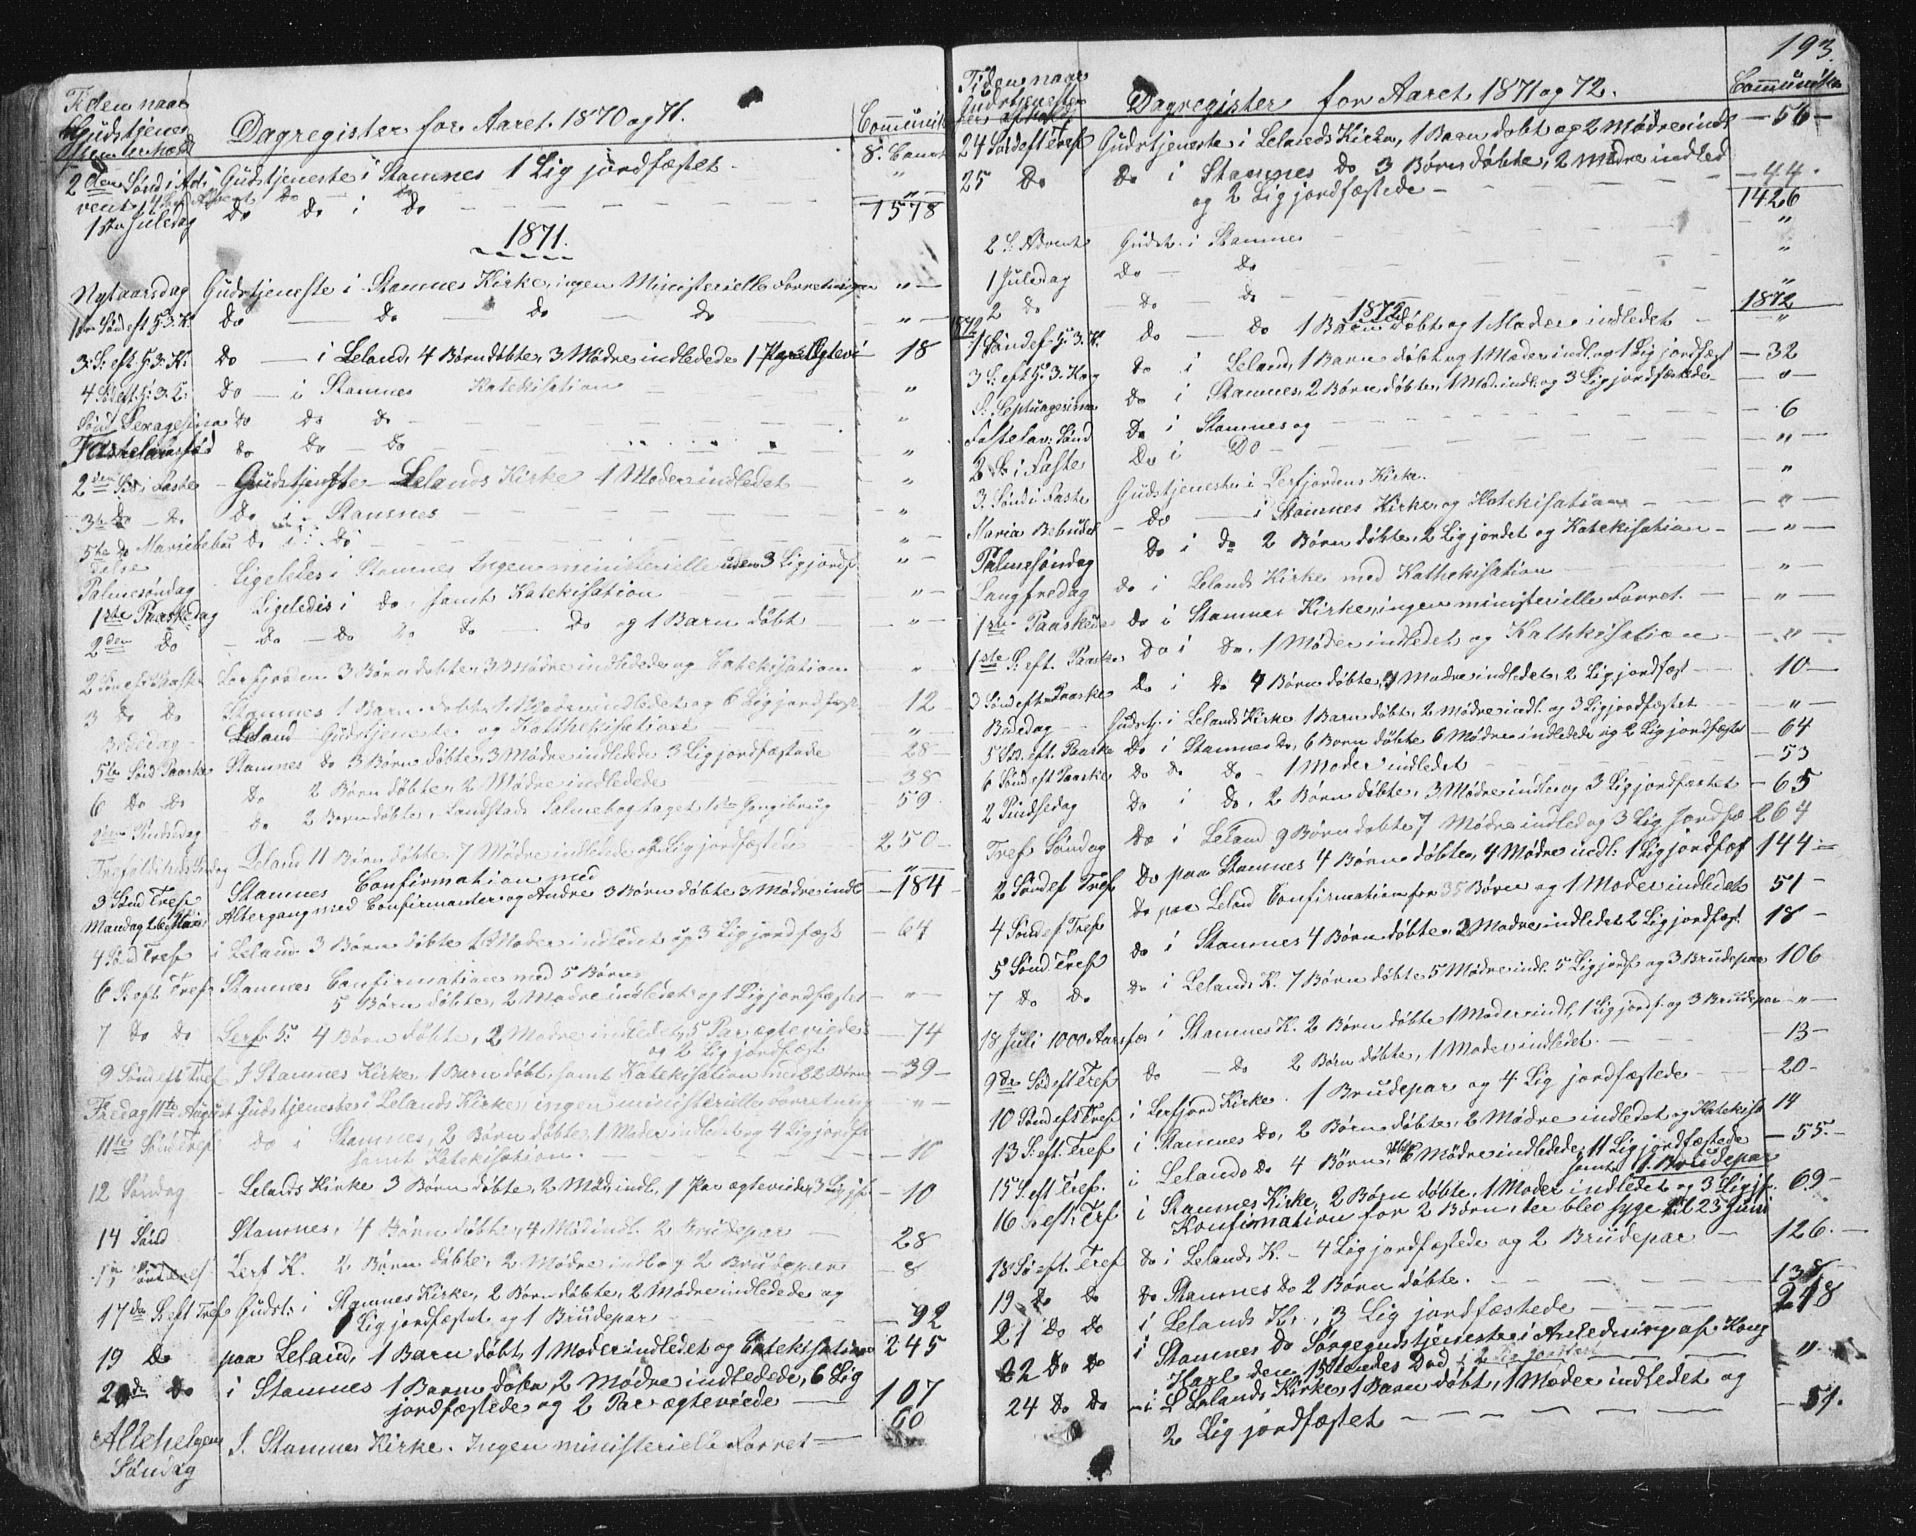 Tiden naar
Gudstjenes
Dagregister for Aaret 1870 og 71.
2den Sønd i Ad Gudstjeneste i Stamnes 1 Lig jordfæstet
vent
1ste Juledag Do Do i Do 1578
1871.
Nytaarsdag Gudstjeneste i Stamnes Kirke, ingen Ministerielle Forretninger "
Do Do Do Do "
3. S. eft. H. 3. K. Do i Leland, 4 Børn døbte, 3 Mødre indledede 1 18
Do i Stamnes Katekisation "
Sønd Sexagesima Do Do Do "
Do Do Do "
2den i Faste Gudstjeneste Lelands Kirke 1 Moder indledet "
3de Do Do i Stamnes "
5te Do Mariæbebu Do i Do "
Palmesøndag Ligeledes i Stamnes Ingen ministerielle uden 3 Lig jordf. "
1ste Paaskedag Ligeledes i Do samt Katekisation "
2den Do Do Do Do Do Do og 1 Barn døbt "
3 Børn døbte, 3 Mødre indledede og Catekisation "
3 Do Do Stamnes 1 Barn døbt, 1 Moder indledet og 6 Lig jordfæst 12
Bededag Leland Gudstjeneste og Kathekisation "
5te Sønd Paaske Stamnes do 3 Børn døbte, 3 Mødre indledde 3 Lig jordfæstede 28
6 Do Do Do 2 Børn døbte, 2 Mødre indledede 38
2den Pindsedag Do 2 Børn døbte, Landstads Salmebog taget 59
Leland 11 Børn døbte, 7 Mødre indledede og 2 Lig jordfæstede 250
3 Sønd Tref Stamnes Confirmation med "
Mandag 26 Altergang med Confirmanter og Andre 3 Børn døbte 3 Mødre indl 184
4 Sønd Tref i Leland 3 Børn døbte 1 Moder indledet og 3 Lig jordfæst 64
6 S. eft Tref Stamnes Confirmation med 5 Børn
5 Børn døbte, 2 Mødre indledet og 1 Lig jordfæstet "
7 Do Do Lerf. 5: 4 Børn døbte, 2 Mødre indledet, 5 Par ægteviede 74
og 2 Lig jordfæst
9 Sønd eft Tref I Stamnes Kirke, 1 Barn døbt, samt Katekisation med 22 Børn 39
Fredag 11te August Gudstjeneste i Lelands Kirke, ingen ministerielle Forretning "
11te Sønd Tref do i Stamnes, 2 Børn døbte, 1 Moder indledet og 4 Lig jordf
samt Katekisation. 10
12 Søndag Lelands Kirke 3 Børn døbte, 2 Mød. indl., 1 Par ægteviede, 3 Lig jf. 10
14 Sønd Stamnes, 4 Børn døbte, 4 Mød indl. 2 Brudepar 28
Lerf K. 2 Børn døbte, 2 Mødre indl og 2 Brudepar 8
17de S. eft Tref Gudst: i Stamnes Kirke, 2 Børn døbte, 2 Mødre indledede og
1 Lig jordfæstet, og 1 Brudepar 92
19 Do paa Leland, 1 Barn døbt, 1 Moder indledet og Catekisation 245
Do i Stamnes 1 Barn døbt, 2 Mødre indledede, 6 Lig
jordfæstede og 2 Par ægteviede 107
Allehelgens I. Stamnes Kirke. Ingen ministerielle Forret 60
Søndag
193
Tiden naar
Gudstjenesten
Dagregister for Aaret 1871 og 72.
24 Sønd eft Tref Gudstjeneste i Lelands Kirke, 1 Barn døbt og 2 Mødre indl 56
25 Do Do i Stamnes Do 3 Børn døbte, 2 Mødre indled
og 2 Lig jordfæstede 44
1426
2 S. Advent Gudst. i Stamnes "
1 Juledag Do Do "
2 Do Do Do "
1872 1872
Do Do 1 Barn døbt og 1 Moder indledet "
3 S. eft H. 3. Kog do i Leland, 1 Barn døbt og 1 Moder indl. og 1 Lig jordfæst 32
S. Septuagesima do i Stamnes, 2 Børn døbte, 1 Mod. indl. og 3 Lig jordfæstede "
Fastelav. Sønd Do i Stamnes og 6
2 S. i Faste Do i Do "
3. Sønd i Faste Gudstjeneste i Lerfjordens Kirke. "
Maria Bebudel Do i Stamnes Kirke, og Katekisation "
Palmesøndag Do i do 2 Børn døbte, 2 Lig jordet og Katekisation "
Langfredag do i Lelands Kirke med Kathekisation "
1ste Paaskeda do i Stamnes Kirke, ingen ministerielle Forret. "
1ste S. eft. Paaske Do i Do. 1 Moder indledet og Kathkisation "
3 Sønd eft Paaske Do i Do 4 Børn døbte, Mødre indledet, 2 Lig jordfæst 10
Bededag Gudstj. i Lelands Kirke 1 Barn døbt, 2 Mødre indl. og 3 Lig jordfæstet "
5 Sø. eft. Paaske Do i Stamnes Do, 6 Børn døbte 6 Mødre indledede og 2 Lig jordfæstet 64
6 Sønd eft Paaske Do Do Do 1 Moder indledet 53
2 Pindsedag Do i Do, 2 Børn døbte, 3 Mødre indl. og 3 Lig jordfæstet 65
Tref Søndag Do i Leland 9 Børn døbte 7 Mødre indled og 3 Lig Jordfæ 264
2 Sønd ef Tref Do paa Stamnes 4 Børn døbte, 4 Mødre indl: 1 Lig jordfæst 144
4 Sønd ef Tref Do paa Leland Confirmation for 35 Børn og 1 Moder indledet 51
5 Sønd. Tref do i Stamnes 4 Børn døbte, 2 Mødre indledet 2 Lig jordfæst 18
7 Do Do do i Lelands K. 7 Børn døbte 5 Mødre indl. 5 Lig jordf. og 3 Brudepar 106
18 Juli 1000 Aarsfæs i Stamnes K. 2 Børn døbte 1 Moder indl, 1 Lig jordf. og 3 Brudepar "
9de Sø eft Tref do Do 2 Børn døbte, 1 Moder indledet. 13
10 Sønd eft Tref i Lerfjord Kirke. 1 Brudepar og 4 Lig jordfæstede 20
13 S. eft. Tref i Stamnes Do, 2 Børn døbte, 2 Mødre indledet og Katekisa 14
15 S. eft Tref. i Lelands Do 4 Børn, døbte 6 Mødre indledede, 11 Lig jordfæstede
samt 1 Brudepar 55
16 S. eft: Tref i Stamnes Kirke, 2 Børn døbte, 1 Moder indledet og 3 Lig jf. 69
Konfirmation for 2 Børn, der blev syge til 23 Juni
18 Sø eft. Tref do i Lelands K. 4 Lig jordfæstede og 2 Brudepar 126
19 Do Do do Stamnes Do 2 Børn døbte.
21 Do Do i Lelands K., 3 Lig jordfæstede 218
22 Do Do i Stamnes Do Sørgegudstjeneste i Anledning af Kong
Karl den 15tendes Død "
24 Do Do i Lelands Kirke, 1 Barn døbt, 1 Moder indledet og
2 Lig jordfæstet 51.